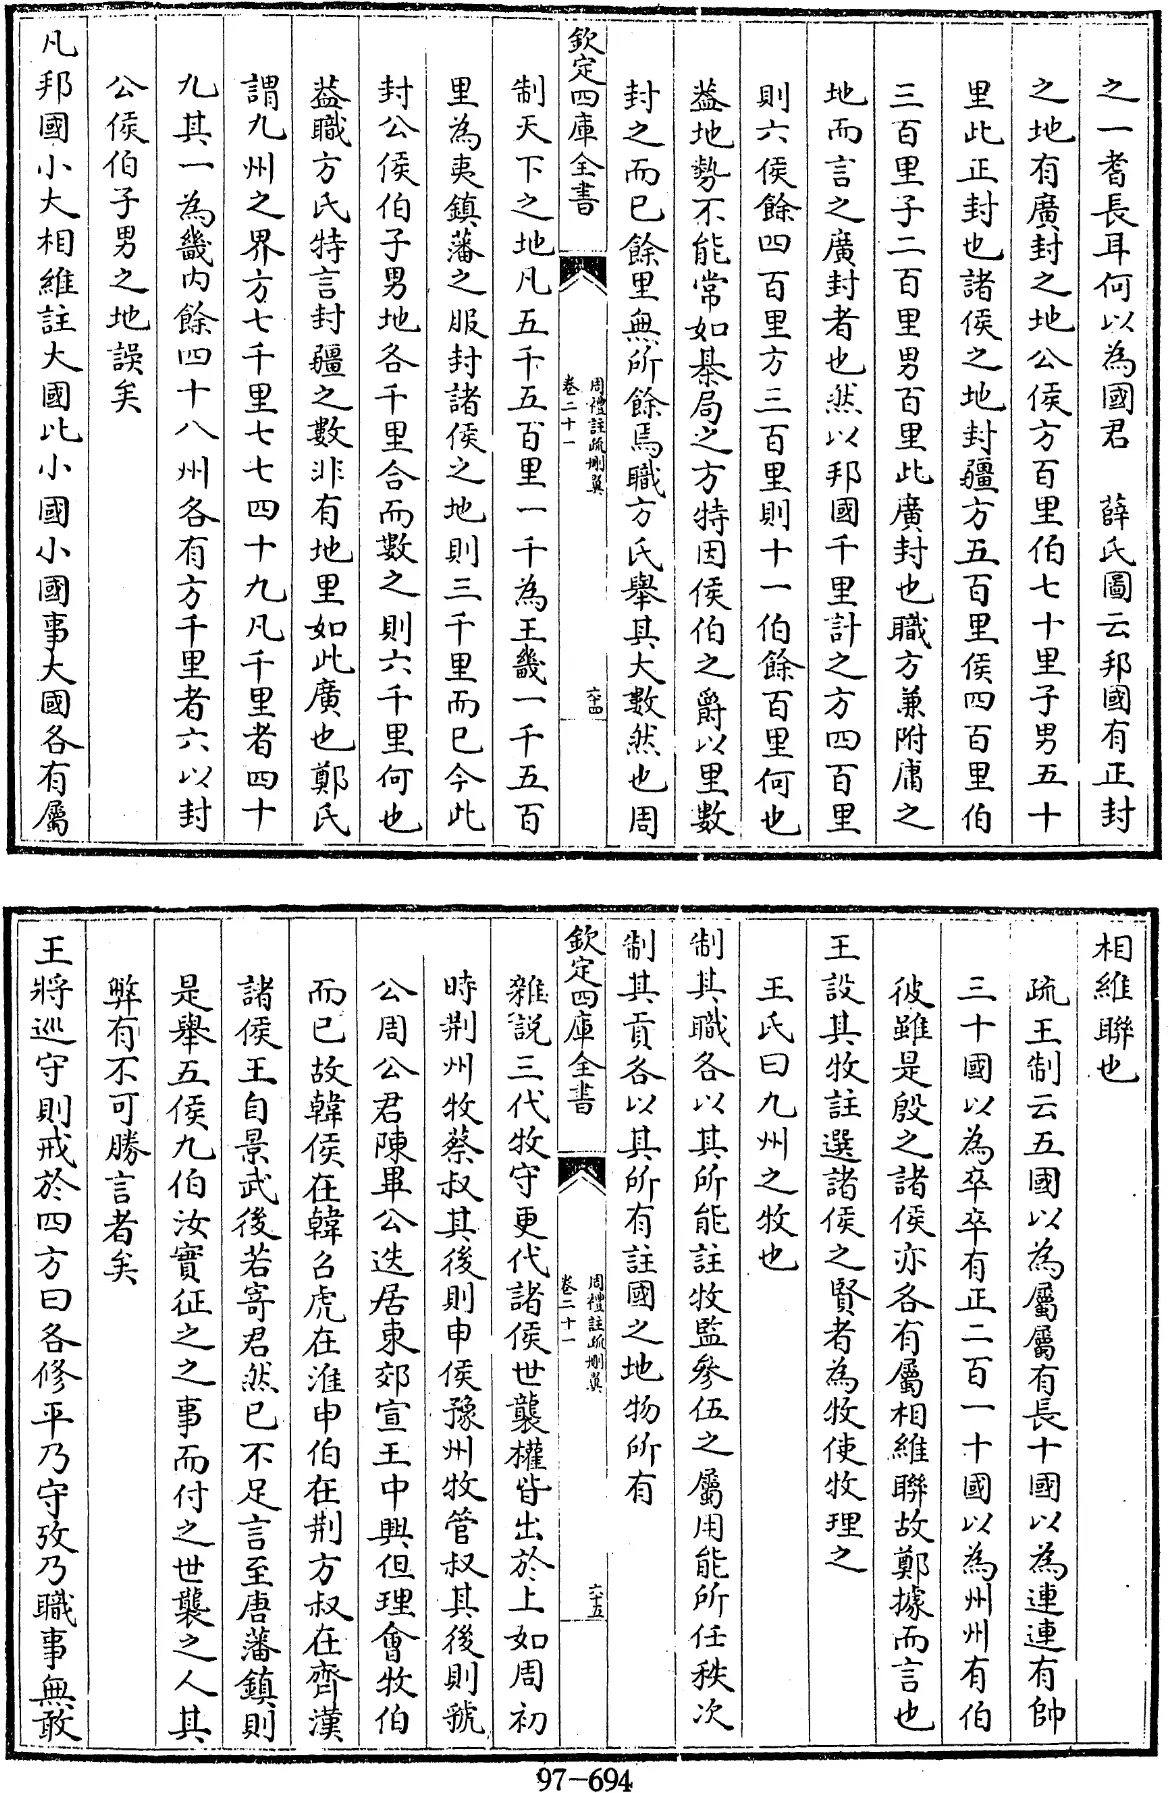 之一耆長耳何以為國君　薛氏圖云邦國有正封
之地有廣封之地公侯方百里伯七十里子男五十
里此正封也諸侯之地封疆方五百里侯四百里伯
三百里子二百里男百里此廣封也職方兼附庸之
地而言之廣封者也然以邦國千里計之方四百里
則六侯餘四百里方三百里則十一伯餘百里何也
葢地勢不能常如棊局之方特因侯伯之爵以里數
封之而已餘里無所餘焉職方氏舉其大數然也周
欽定四庫全書
周禮註疏刪翼
卷二十一
六十四
制天下之地凡五千五百里一千為王畿一千五百
里為夷鎮藩之服封諸侯之地則三千里而已今此
封公侯伯子男地各千里合而數之則六千里何也
葢職方氏特言封疆之數非有地里如此廣也鄭氏
謂九州之界方七千里七七四十九凡千里者四十
九其一為畿内餘四十八州各有方千里者六以封
公侯伯子男之地誤矣
凡邦國小大相維註大國比小國小國事大國各有屬
相維聯也
疏王制云五國以為屬屬有長十國以為連連有帥
三十國以為卒卒有正二百一十國以為州州有伯
彼雖是殷之諸侯亦各有屬相維聯故鄭據而言也
王設其牧註選諸侯之賢者為牧使牧理之
王氏曰九州之牧也
制其職各以其所能註牧監參伍之屬用能所任秩次
制其貢各以其所有註國之地物所有
欽定四庫全書
周禮註疏刪翼
卷二十一
六十五
雜說三代牧守更代諸侯世襲權皆出於上如周初
時荆州牧蔡叔其後則申侯豫州牧管叔其後則虢
公周公君陳畢公迭居東郊宣王中興但理會牧伯
而已故韓侯在韓召虎在淮申伯在荆方叔在齊漢
諸侯王自景武後若寄君然已不足言至唐藩鎮則
是舉五侯九伯汝實征之之事而付之世襲之人其
弊有不可勝言者矣
王將巡守則戒於四方曰各修平乃守攷乃職事無敢
97-694